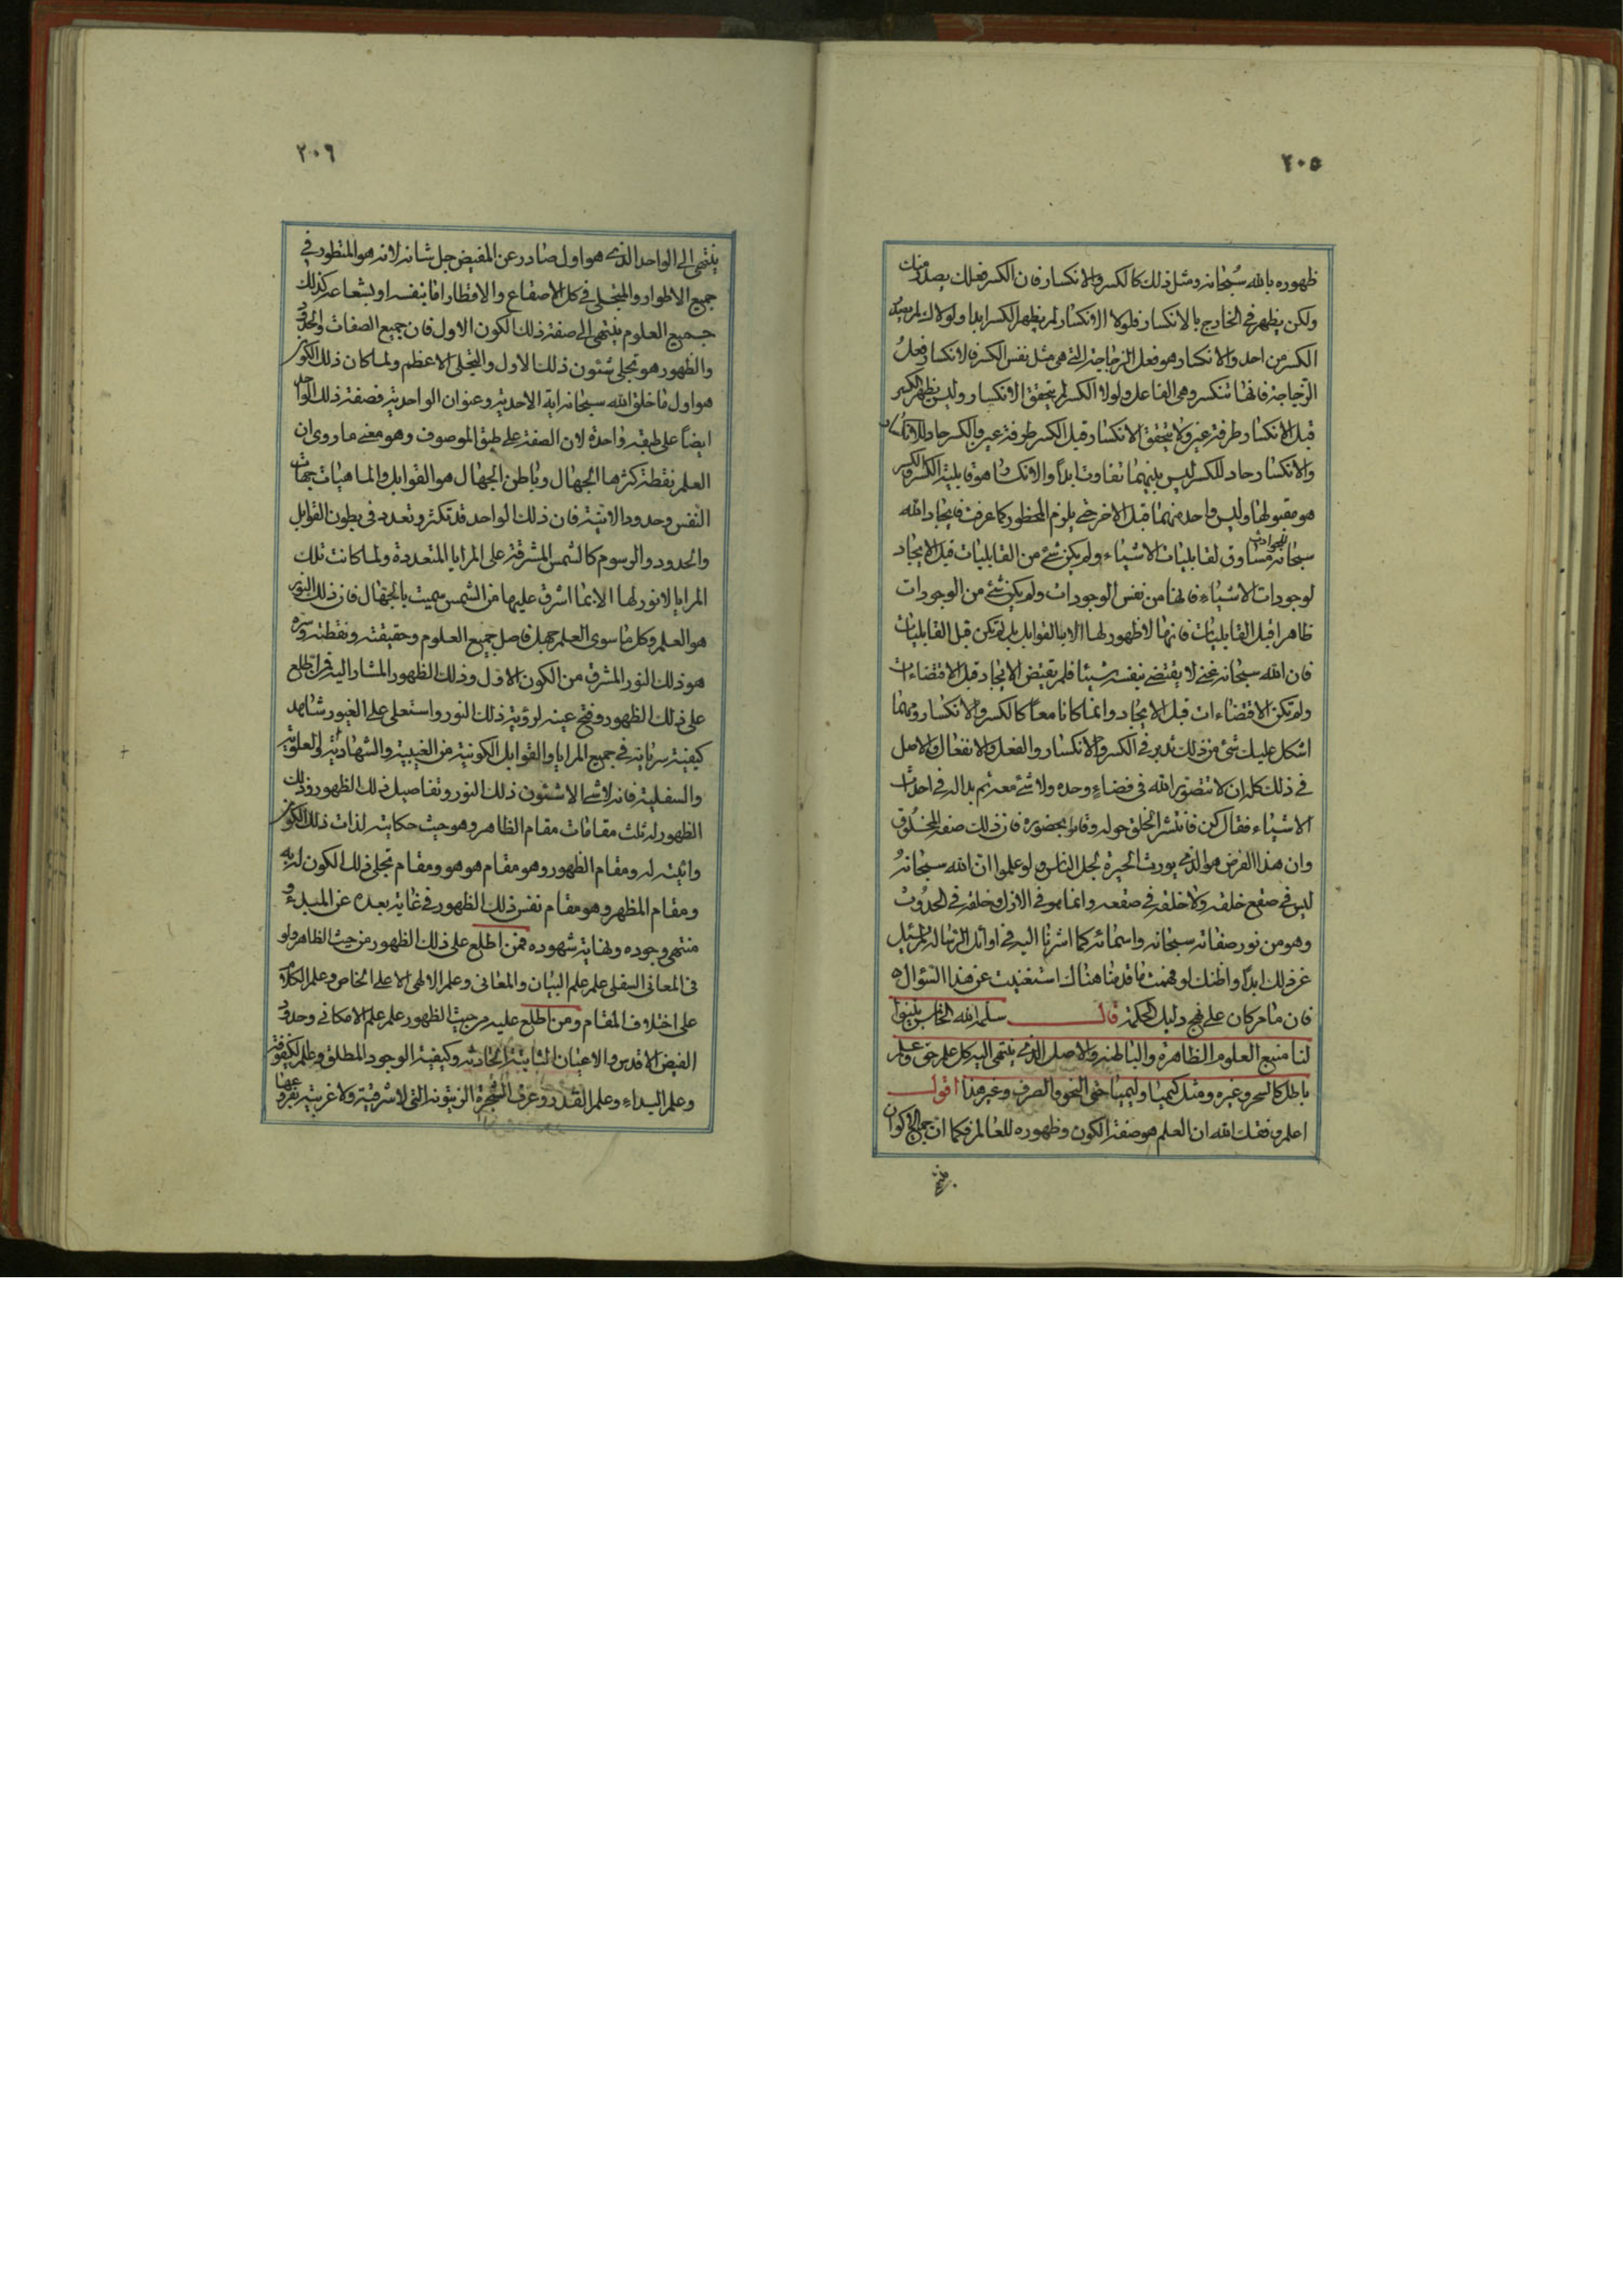 ٢٠٥
ظهوره بالله سبحانه ومثل ذلك كالكسر والانكسار فان الكسر فعلك يصدر منك
ولكن يظهر في الخارج بالانكسار فلولا الانكسار لم يظهر الكسر ابدا ولولاك لم يصدر
الكسر من احد والانكسار هو فعل الزجاجة التي هي مثل نفس الكسر فالانكسار فعل
الزجاجة فانها تنكسر وهي الفاعل ولولا الكسر لم يتحقق الانكسار وليس يظهر الكسر
قبل الانكسار طرفة عين ولا يتحقق الانكسار قبل الكسر طرفة عين والكسر حاد للانكسار
والانكسار حاد للكسر ليس بينهما تفاوت ابدا والانكسار هو قابلية الكسر والكسر
هو مقبولها وليس واحد منهما قبل الاخر حتى يلزم المحظور كما عرفت فايجاد الله
سبحانه للموجودات مساوق لقابليات الاشياء ولم يكن شئ من القابليات قبل الايجاد
لوجودات الاشياء فانها من نفس الوجودات ولم يكن شئ من الوجودات
ظاهرا قبل القابليات فانها لا ظهور لها الا بالقوابل بل لم تكن قبل القابليات
فان الله سبحانه غني لا يقتضي بنفسه شيئا فلم يقتض الايجاد قبل الاقتضاءات
ولم تكن الاقتضاءات قبل الايجاد وانما كانا معا كالكسر والانكسار ومهما
اشكل عليك شئ من ذلك تدبر في الكسر والانكسار والفعل والانفعال والاصل
في ذلك كله ان لا تتصور الله في فضاء وحده ولا شئ معه ثم بدا له في احداث
الاشياء فقال كن فانتشر الخلق حوله وقاموا بحضوره فان ذلك صفة المخلوق
وان هذا الفرض هو الذي يورث الحيرة لجل الناس ولو علموا ان الله سبحانه
ليس في صقع خلقه ولا خلقه في صقعه وانما هو في الازل وخلقه في الحدوث
وهو من نور صفاته سبحانه واسمائه كما اشرنا اليه في اوائل الرسالة لم يسئل
عن ذلك ابدا واظنك لو فهمت ما قدمنا هناك استغنيت عن هذا السؤال
فان ما مر كان على نهج دليل الحكمة قال سلمه الله الخامس بينوا
لنا منبع العلوم الظاهرة والباطنة والاصل الذي ينتهي اليه كل علم حق وعلم
باطل كالسحر وغيره ومثل كيميا وليميا حتى النحو والصرف وغير هذا اقول
اعلم وفقك الله ان العلم هو صفة الكون وظهوره للعالم فكما ان جميع الاكوان
٢٠٦
ينتهي الى الواحد الذي هو اول صادر عن المفيض جل شانه لانه هو المتطور في
جميع الاطوار والمتجلي في كل الاصقاع والاقطار اما بنفسه او بشعاعه كذلك
جميع العلوم ينتهي الى صفة ذلك الكون الاول فان جميع الصفات والحدود
والظهور هو تجلي شئون ذلك الاول والتجلي الاعظم ولما كان ذلك الكون
هو اول ما خلق الله سبحانه اية الاحدية وعنوان الواحدية فصفة ذلك الواحد
ايضا على طبقه واحدة لان الصفة على طبق الموصوف وهو معنى ما روي ان
العلم نقطة كثرها الجهال وباطن الجهال هو القوابل والماهيات جهات
النفس وحدود الانية فان ذلك الواحد قد تكثر وتعدد في بطون القوابل
والحدود والرسوم كالشمس المشرقة على المرايا المتعددة ولما كانت تلك
المرايا لا نور لها الا بما اشرق عليها من الشمس سميت بالجهال فان ذلك النور
هو العلم وكل ما سوى العلم جهل فاصل جميع العلوم وحقيقته ونقطته وسره
هو ذلك النور المشرق من الكون الاول وذلك الظهور المشار اليه فمن اطلع
على ذلك الظهور وفتح عينه لرؤية ذلك النور واستعلى على الغيور شاهد
كيفية سريانه في جميع المرايا والقوابل الكونية من الغيبية والشهادية او العلوية
والسفلية فانه لا شئ الا شئون ذلك النور وتفاصيل ذلك الظهور وذلك
الظهور له ثلث مقامات مقام الظاهر وهو حيث حكايته لذات ذلك الكون
وائيته له ومقام الظهور وهو مقام هو هو ومقام تجلي ذلك الكون له به
ومقام المظهر وهو مقام نفس ذلك الظهور في غاية بعده عن المبدء و
منتهى وجوده ونهاية شهوده فمن اطلع على ذلك الظهور من حيث الظاهر ولو
في المعاني السفلى علم علم البيان والمعاني وعلم الالهي الاعلى الخاص وعلم الكلام
على اختلاف المقام ومن اطلع عليه من حيث الظهور علم علم الامكاني وحدود
الفيض الاقدس والاعيان الثابتة وكيفية الوجود المطلق وعلم الكيفوفة
وعلم البداء وعلم القدر وعرف الشجرة الزيتونة التي لا شرقية ولا غربية